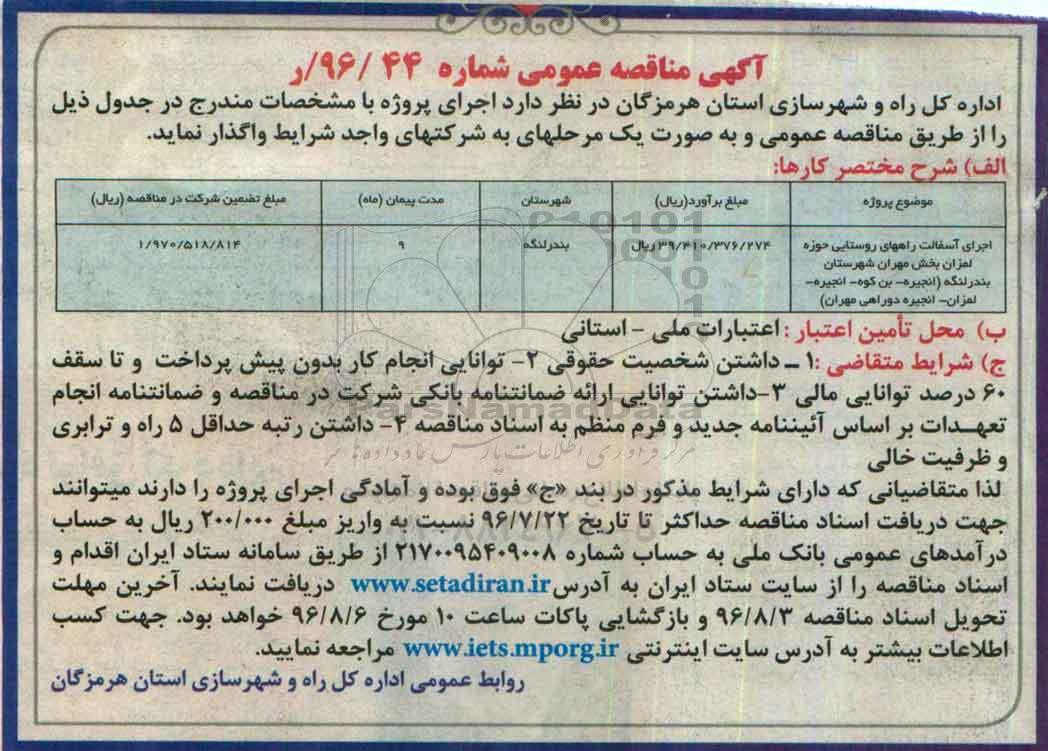 آگهی مناقصه عمومی شماره ۴۴ /۹۶/ر
اداره کل راه و شهرسازی استان هرمزگان در نظر دارد اجرای پروژه با مشخصات مندرج در جدول ذیل
را از طریق مناقصه عمومی و به صورت یک مرحلهای به شرکتهای واجد شرایط واگذار نماید.
الف) شرح مختصر کارها:
موضوع پروژه مبلغ برآورد(ریال) شهرستان مدت پیمان (ماه) مبلغ تضمین شرکت در مناقصه (ریال)
اجرای آسفالت راههای روستایی حوزه ۳۹/۴۱۰/۳۷۶/۲۷۴ ریال بندرلنگه ۹ ۱/۹۷۰/۵۱۸/۸۱۴
لمزان بخش مهران شهرستان
بندرلنگه (انجیره- بن کوه- انجیره-
لمزان- انجیره دوراهی مهران)
ب) محل تأمین اعتبار : اعتبارات ملی - استانی
ج) شرایط متقاضی :۱ ـ داشتن شخصیت حقوقی ۲- توانایی انجام کار بدون پیش پرداخت و تا سقف
۶۰ درصد توانایی مالی ۳-داشتن توانایی ارائه ضمانتنامه بانکی شرکت در مناقصه و ضمانتنامه انجام
تعهدات بر اساس آئیننامه جدید و فرم منظم به اسناد مناقصه ۴- داشتن رتبه حداقل ۵ راه و ترابری
و ظرفیت خالی
لذا متقاضیانی که دارای شرایط مذکور در بند «ج» فوق بوده و آمادگی اجرای پروژه را دارند میتوانند
جهت دریافت اسناد مناقصه حداکثر تا تاریخ ۹۶/۷/۲۲ نسبت به واریز مبلغ ۲۰۰/۰۰۰ ریال به حساب
درآمدهای عمومی بانک ملی به حساب شماره ۲۱۷۰۰۹۵۴۰۹۰۰۸ از طریق سامانه ستاد ایران اقدام و
اسناد مناقصه را از سایت ستاد ایران به آدرس www.setadiran.ir دریافت نمایند. آخرین مهلت
تحویل اسناد مناقصه ۹۶/۸/۳ و بازگشایی پاکات ساعت ۱۰ مورخ ۹۶/۸/۶ خواهد بود. جهت کسب
اطلاعات بیشتر به آدرس سایت اینترنتی www.iets.mporg.ir مراجعه نمایید.
روابط عمومی اداره کل راه و شهرسازی استان هرمزگان
ParsNamadData